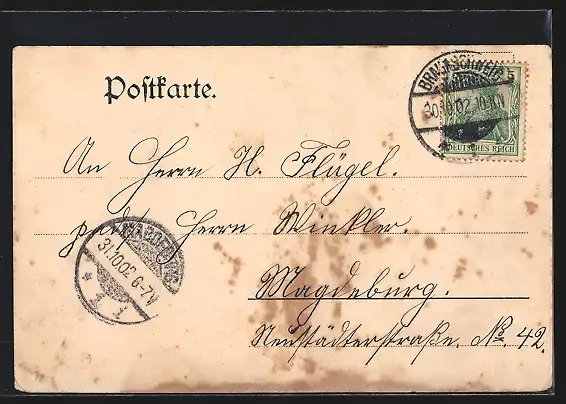 Postkarte.
BRAUNSCHWEIG
30.10.02.10-11N
5
DEUTSCHES REICH
An Herrn H. Flügel.
Herrn Winkler.
MAGDEBURG
31.10.02 6-7V
* 1 l
Magdeburg.
Neustädterstraße. No. 42.